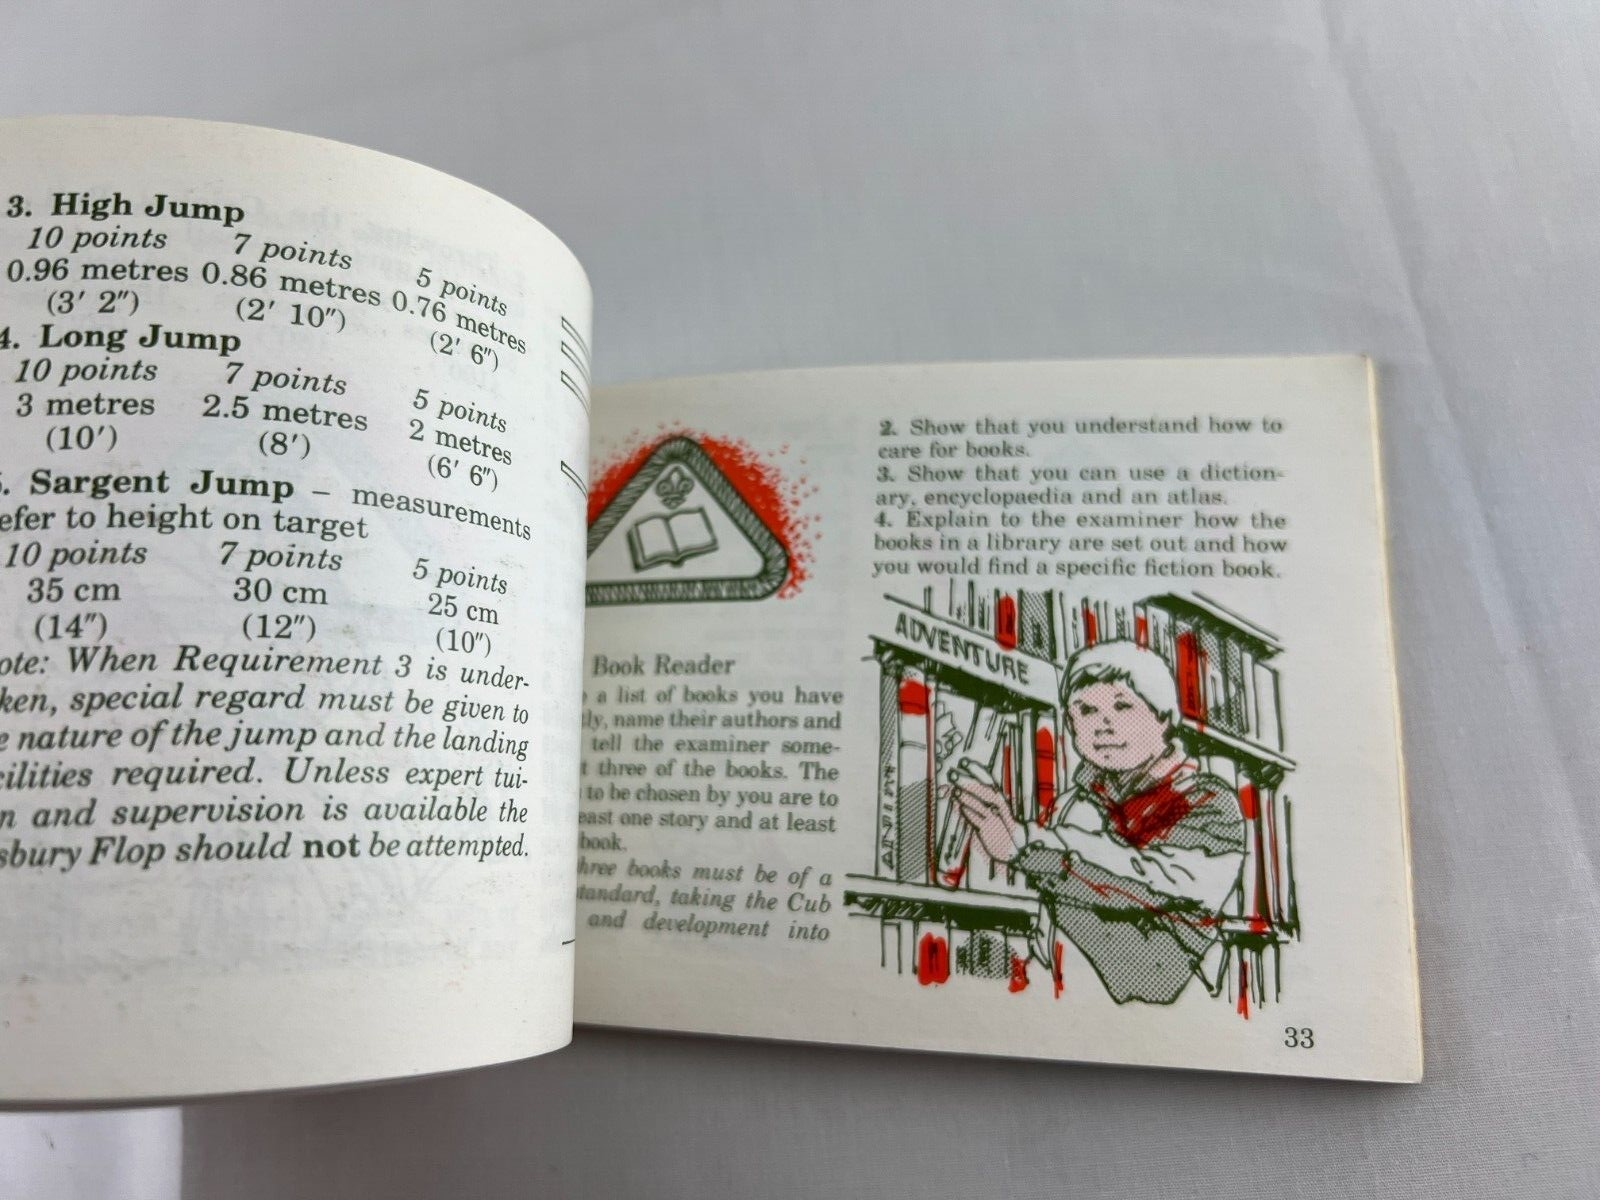 3. High Jump
10 points 7 points 5 points
0.96 metres 0.86 metres 0.76 metres
(3′ 2″) (2′ 10″) (2′ 6″)
4. Long Jump
10 points 7 points 5 points
3 metres 2.5 metres 2 metres
(10′) (8′) (6′ 6″)
. Sargent Jump – measurements
efer to height on target
10 points 7 points 5 points
35 cm 30 cm 25 cm
(14″) (12″) (10″)
ote: When Requirement 3 is under-
ken, special regard must be given to
e nature of the jump and the landing
cilities required. Unless expert tui-
n and supervision is available the
sbury Flop should not be attempted.
Book Reader
a list of books you have
tly, name their authors and
tell the examiner some-
t three of the books. The
to be chosen by you are to
east one story and at least
book.
hree books must be of a
tandard, taking the Cub
and development into
2. Show that you understand how to
care for books.
3. Show that you can use a diction-
ary, encyclopaedia and an atlas.
4. Explain to the examiner how the
books in a library are set out and how
you would find a specific fiction book.
ADVENTURE
33